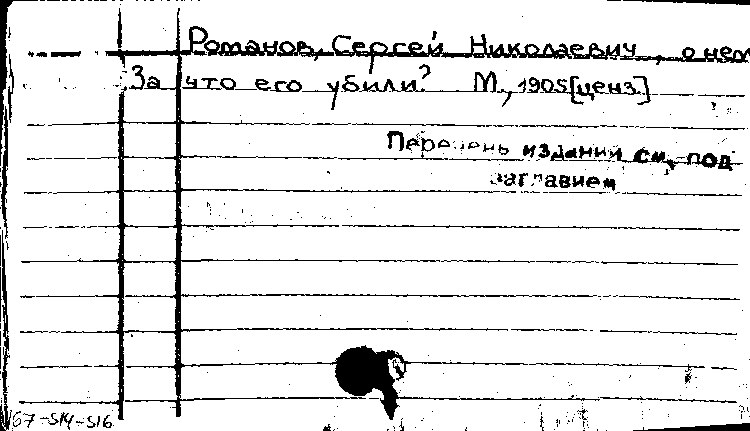 Романов, Сергей Николаевич, о нем
За что его убили? М., 1905 [ценз.]
Перечень изданий см. под
заглавием
67-514-516